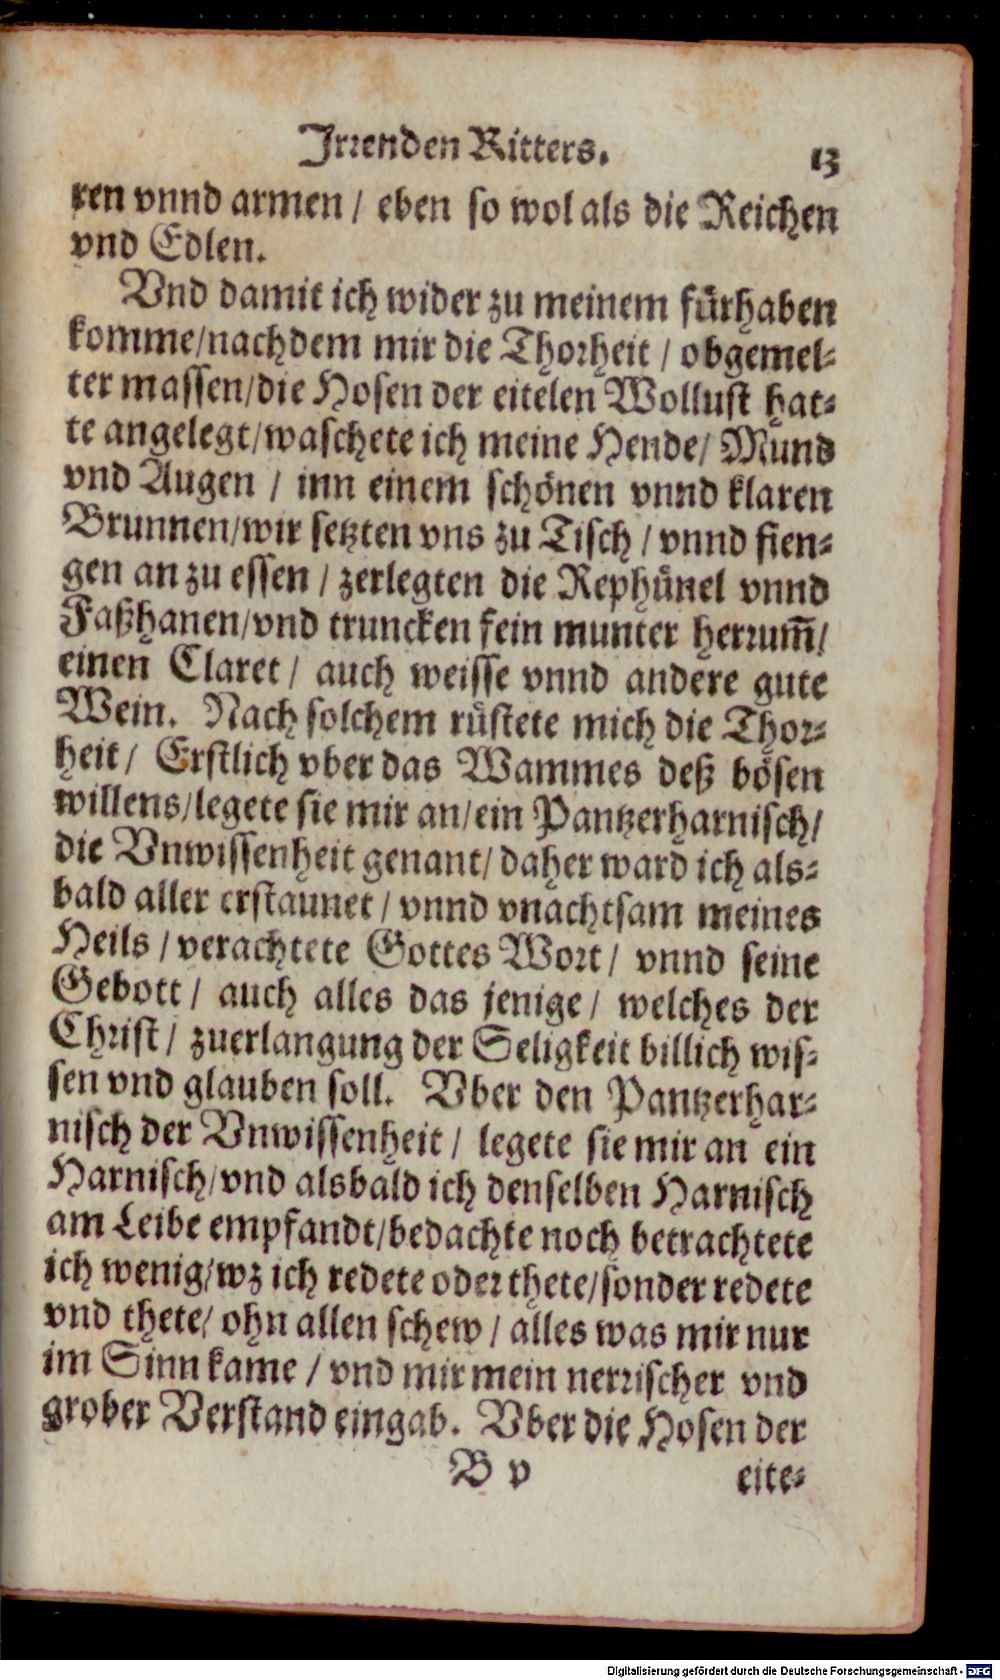 Irrenden Ritters. 13
ren vnnd armen / eben so wol als die Reichen
vnd Edlen.
Vnd damit ich wider zu meinem fürhaben
komme/nachdem mir die Thorheit / obgemel-
ter massen/die Hosen der eitelen Wollust hat-
te angelegt/waschete ich meine Hende/ Mund
vnd Augen / inn einem schönen vnnd klaren
Brunnen/wir setzten vns zu Tisch / vnnd fien-
gen an zu essen / zerlegten die Rephünel vnnd
Faßhanen/vnd truncken fein munter herrum̃/
einen Claret / auch weisse vnnd andere gute
Wein. Nach solchem rüstete mich die Thor-
heit / Erstlich vber das Wammes deß bösen
willens/legete sie mir an/ein Pantzerharnisch/
die Vnwissenheit genant/ daher ward ich als-
bald aller erstaunet / vnnd vnachtsam meines
Heils / verachtete Gottes Wort / vnnd seine
Gebott / auch alles das jenige / welches der
Christ / zuerlangung der Seligkeit billich wis-
sen vnd glauben soll. Vber den Pantzerhar-
nisch der Vnwissenheit / legete sie mir an ein
Harnisch/vnd alsbald ich denselben Harnisch
am Leibe empfandt/bedachte noch betrachtete
ich wenig/wz ich redete oder thete/sonder redete
vnd thete/ ohn allen schew / alles was mir nur
im Sinn kame / vnd mir mein nerrischer vnd
grober Verstand eingab. Vber die Hosen der
B v eite-
Digitalisierung gefördert durch die Deutsche Forschungsgemeinschaft - DFG